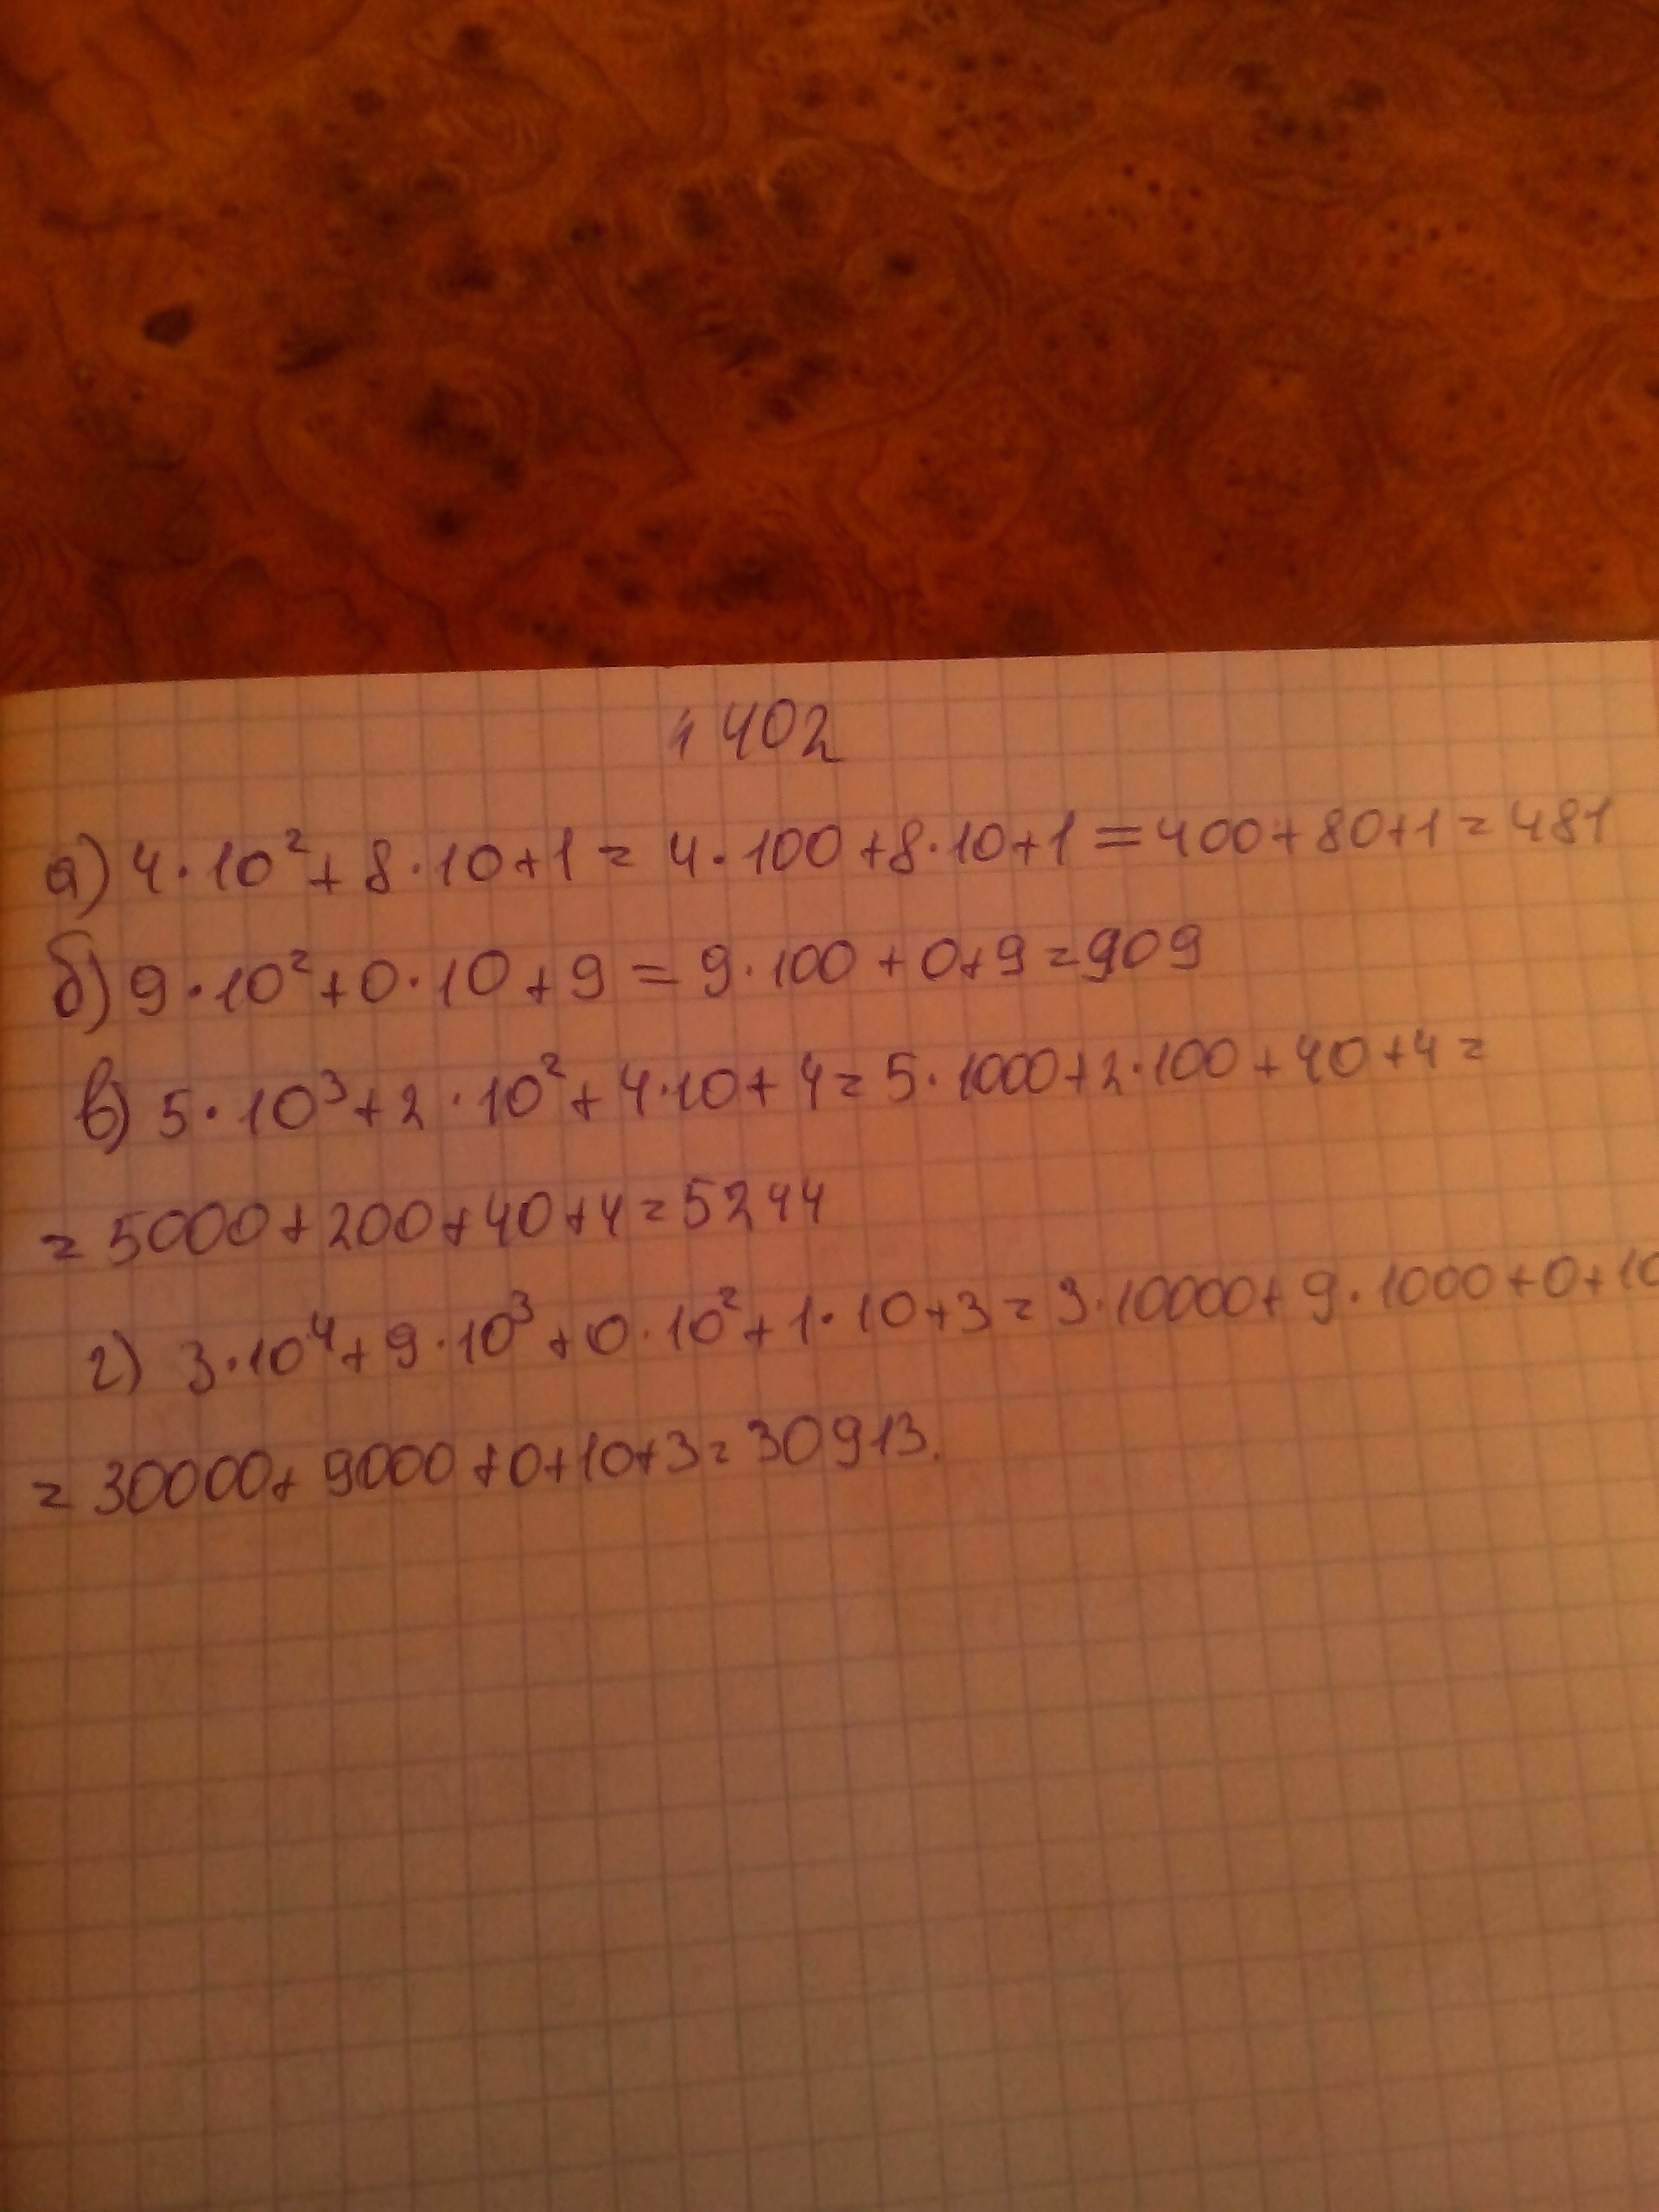 1402
а) 4·10²+8·10+1=4·100+8·10+1=400+80+1=481
б) 9·10²+0·10+9=9·100+0+9=909
в) 5·10³+2·10²+4·10+4=5·1000+2·100+40+4=
=5000+200+40+4=5244
г) 3·10⁴+9·10³+0·10²+1·10+3=3·10000+9·1000+0+10
=30000+9000+0+10+3=30913.